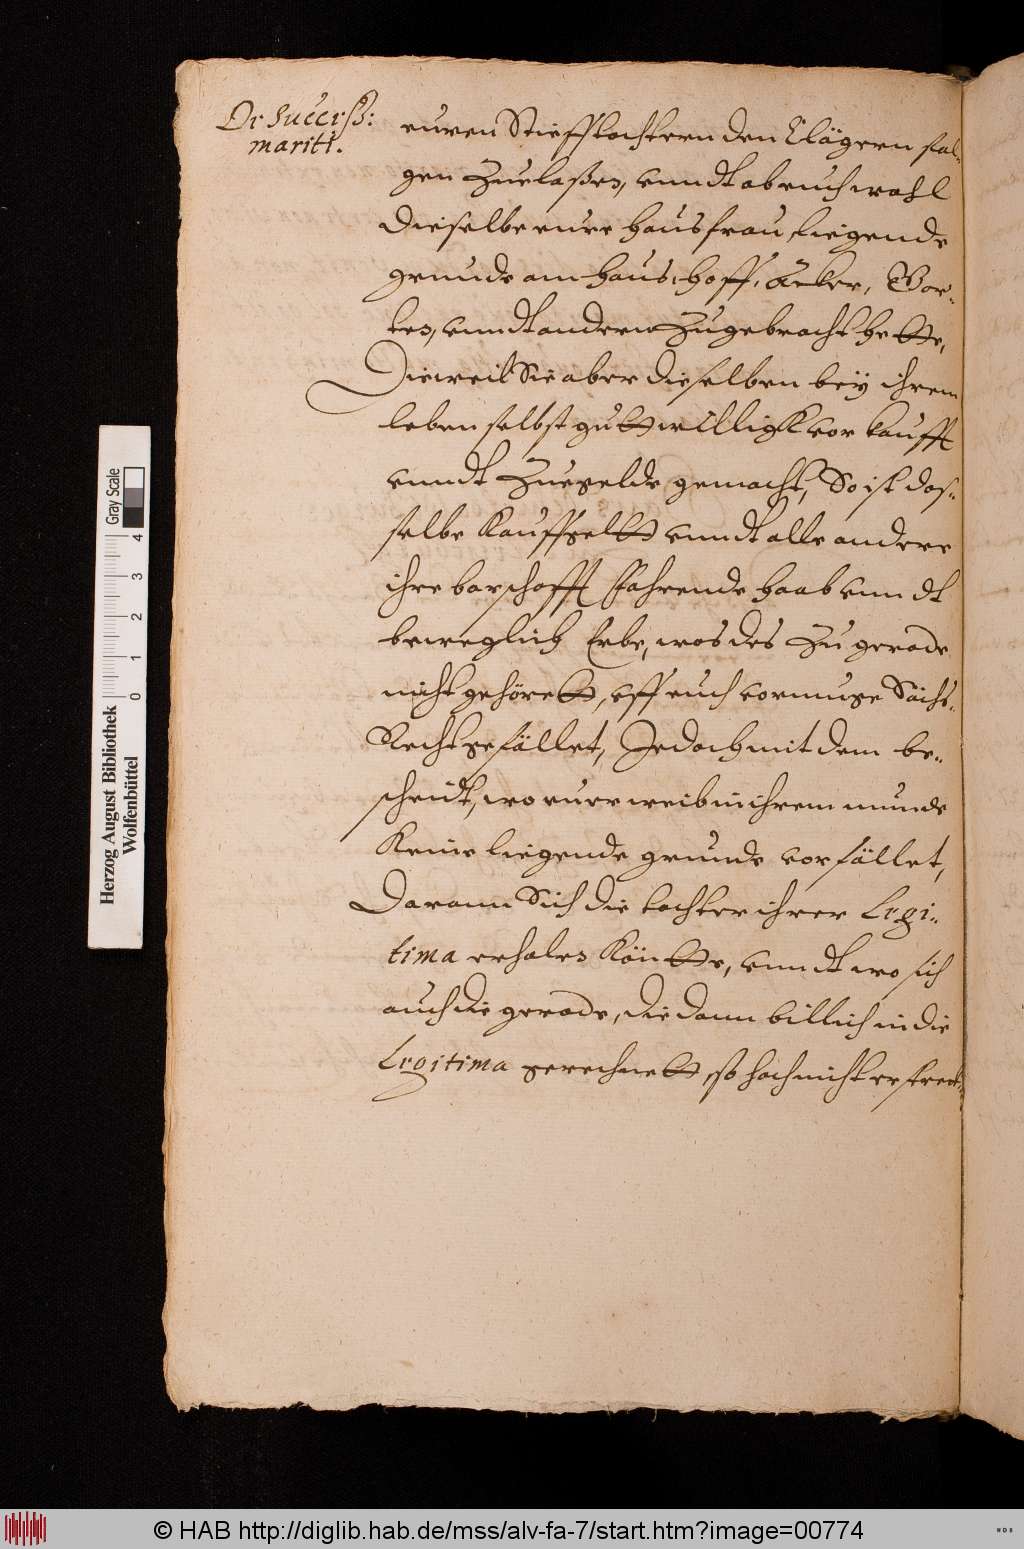 De Success:
mariti.
euren Stiefftochtern den Clägern fol-
gen Zuelaßen, vnndt ob euch wohl
dieselbe eure Hausfrau, liegende
grunde am Haus, Hoff, äcker, Gar-
ten, vnndt andern Zugebracht hette,
Dieweil Sie aber dieselben beÿ ihrem
leben selbst guttwillig vorkaufft
vnndt Zuegelde gemacht, So ist das-
selbe Kauffgeltt vnndt alle andere
ihre barschafft fahrende haab vnndt
beweglich Erbe, was des Zu gerade
nicht gehörett, vff euch vormuge Sächs-
Recht gefället, Jedoch mit dem be-
scheidt, wo euer weib in ihrem
Keine liegende grunde vorfället,
Daran Sich die tochter ihrer Legi-
tima erholen Köntte, vnndt wo sich
auch die gerade, die dann billich in die
Legitima gerechnett, so hoch nicht erstreck-
Herzog August Bibliothek
Wolfenbüttel
Gray Scale
0 1 2 3 4
© HAB http://diglib.hab.de/mss/alv-fa-7/start.htm?image=00774